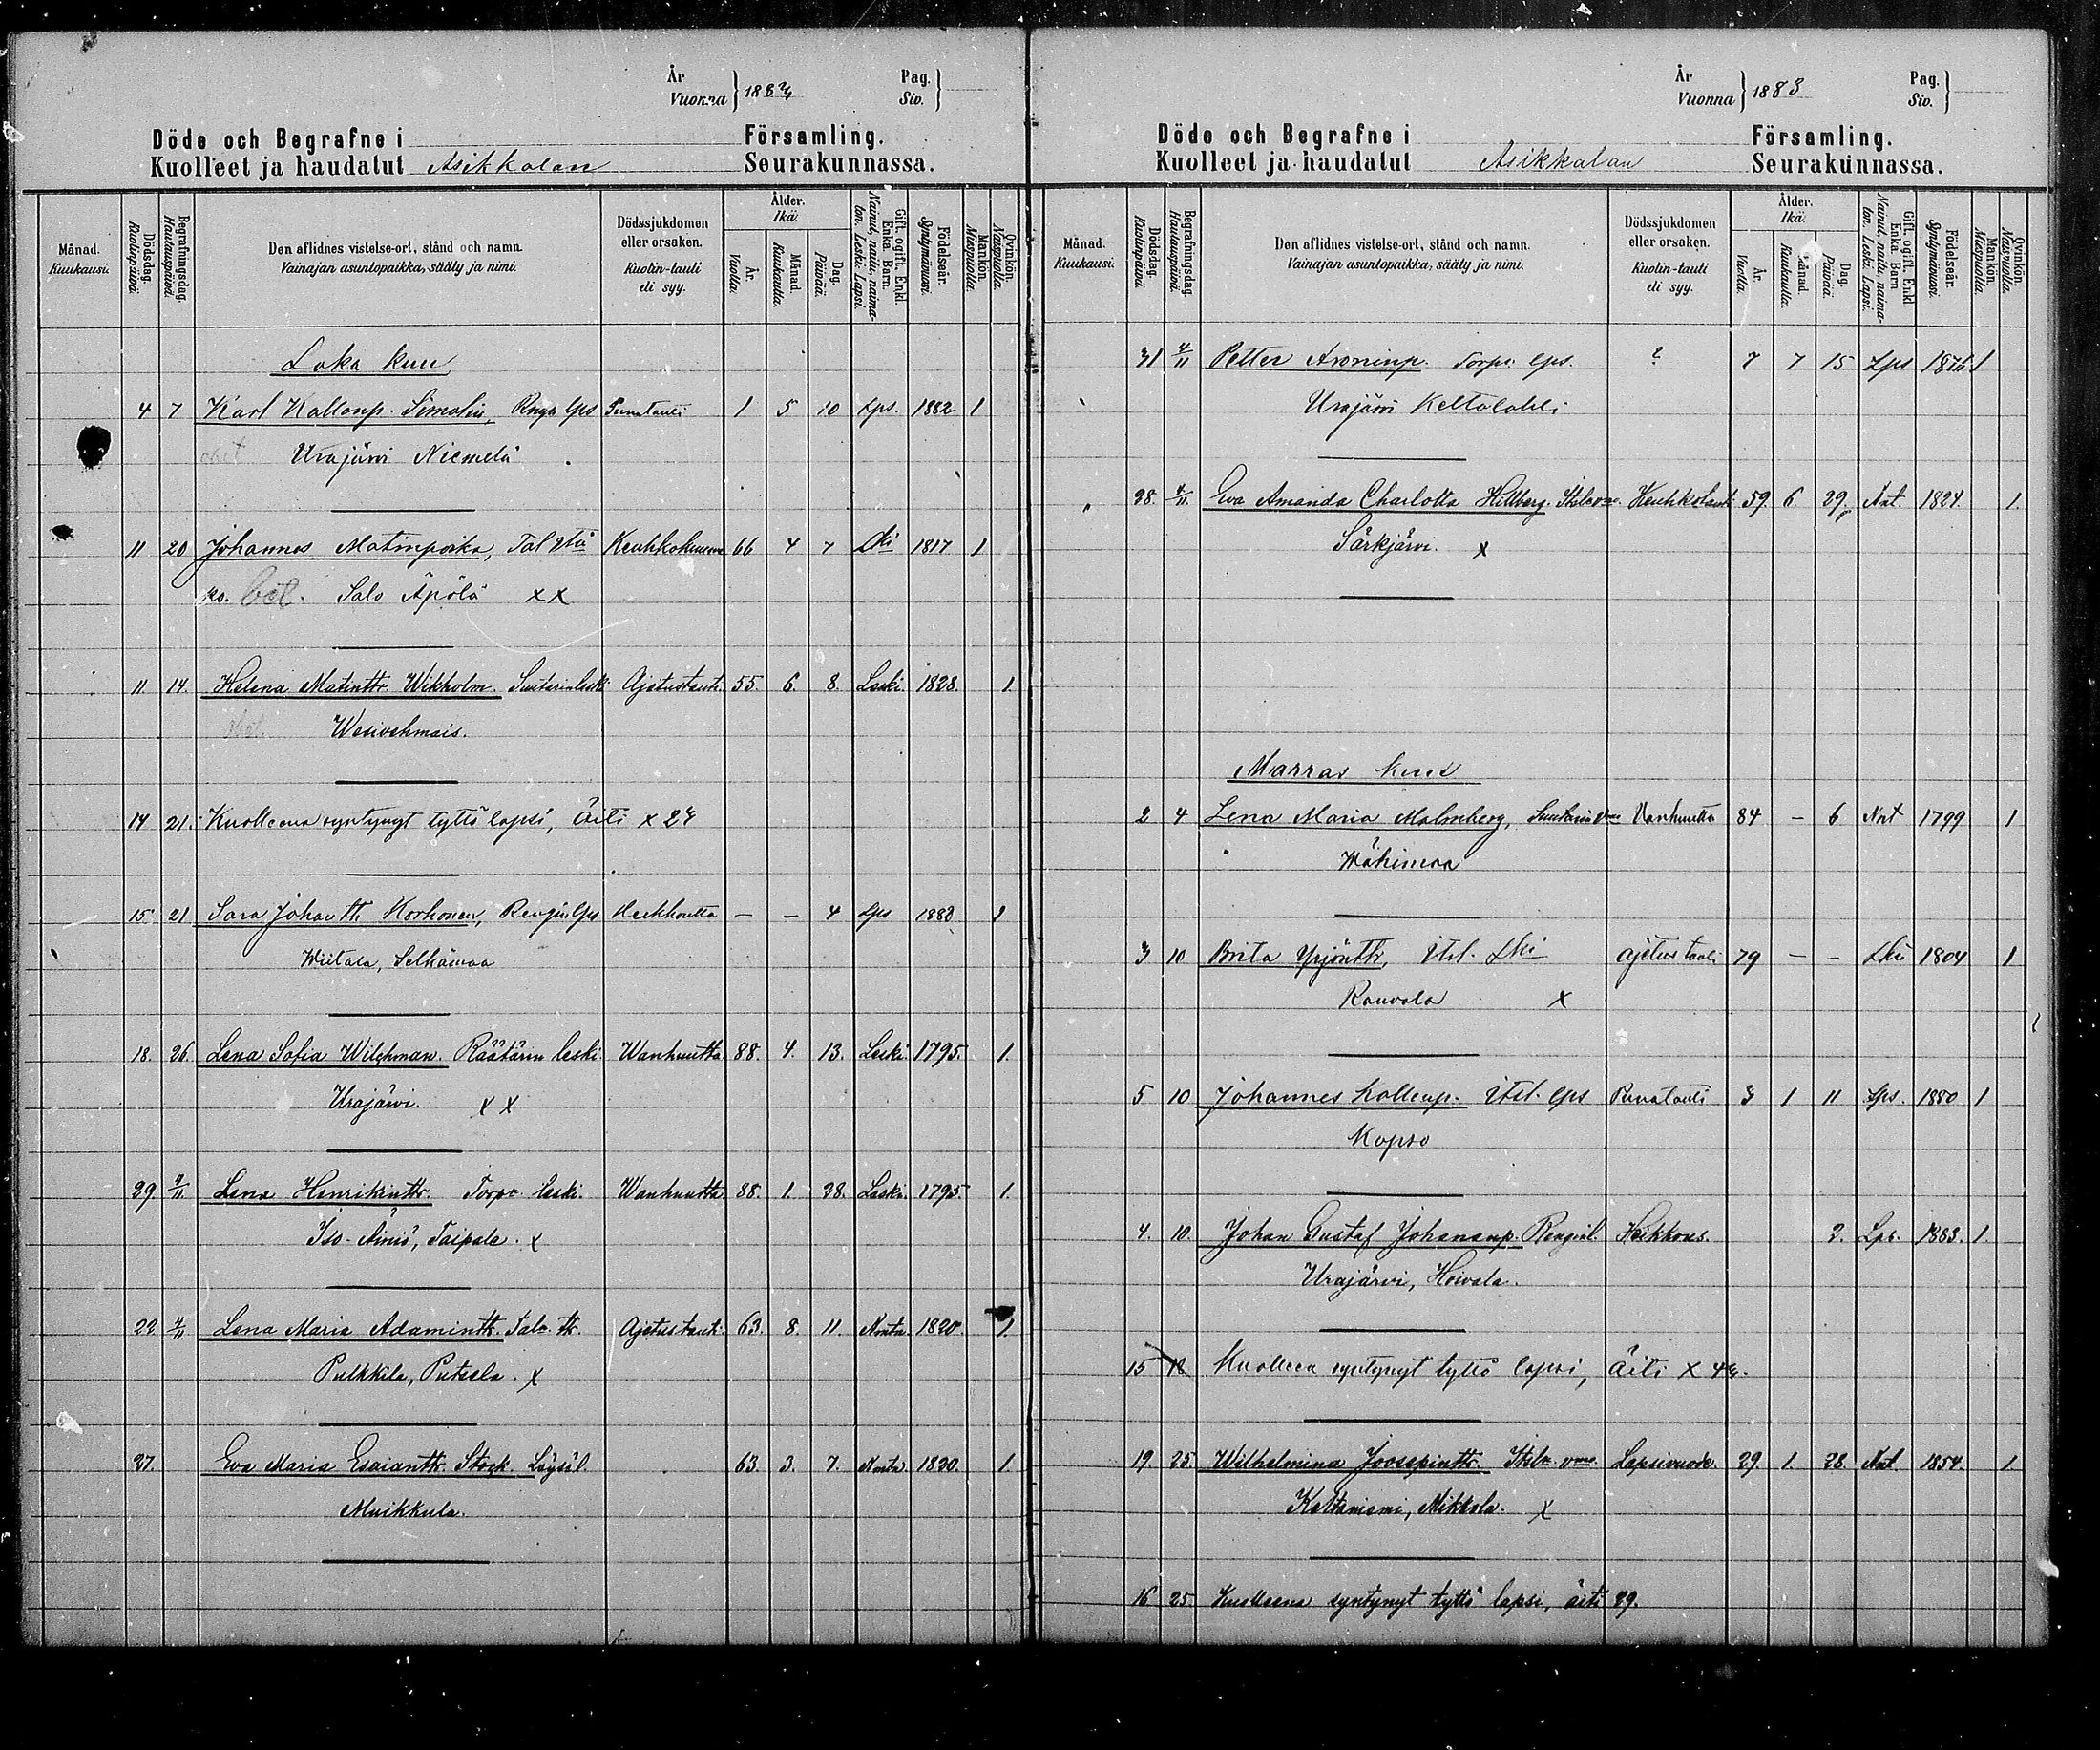 År
Vuonna } 1883 Pag.
Siv. }
Döde och Begrafne i Församling.
Kuolleet ja haudatut Asikkalan Seurakunnassa.
Månad. Kuukausi.
Dödsdag. Kuolinpäivä.
Begrafningsdag. Hautauspäivä.
Den aflidnes vistelse-ort, stånd och namn.
Vainajan asuntopaikka, sääty ja nimi.
Dödssjukdomen eller orsaken.
Kuolin-tauti eli syy.
Ålder. Ikä.
År. Vuotta.
Månad. Kuukautta.
Dag. Päivää.
Gift, ogift, Enkl. Enka. Barn.
Nainut, naitu, naimaton. Leski. Lapsi.
Födelseår. Syntymävuosi.
Mankön. Miespuolia.
Qvinkön. Naispuolia.
Loka kuu
4 7 Karl Kallenp. Simolin, Rengin lps Punatauti 1 5 10 Lps. 1882 1
Urajärvi Niemelä
11 20 Johannes Matinpoika, Tal Keuhkokuume 66 4 7 Lki 1817 1
ko. Salo Äpölä x x
11 14. Helena Matinttr. Wikholm. Suutarinleski Ajetustauti 55. 6. 8. Leski. 1828. 1
Wesivehmais.
14 21. Kuolleena syntynyt tyttö lapsi, Äiti x 24
15 21 Sara Johantt. Korhonen, Rengin lps Heikkoutta — — 4 Lps 1883 1
Wiitala, Selkämaa
18. 26. Lena Sofia Wilghman. Räätärin leski Wanhuutta. 88. 4. 13. Leski. 1795. 1.
Urajärvi. x x
29 9/11. Lena Henrikinttr. Torp. leski. Wanhuutta. 88. 1. 28. Leski. 1795. 1.
Iso-Äiniö, Taipale. x
22 4/11 Lena Maria Adamintr. Tal. tr. Ajetustauti. 63. 8. 11. Nmtn 1820. 1.
Pulkkila, Putsela. x
27. Eva Maria Esaianttr. Stock. Löysäl. 63. 3. 7. Nmtn. 1820. 1.
Muikkula.
År
Vuonna } 1883 Pag.
Siv. }
Döde och Begrafne i Församling.
Kuolleet ja haudatut Asikkalan Seurakunnassa.
Månad. Kuukausi.
Dödsdag. Kuolinpäivä.
Begrafningsdag. Hautauspäivä.
Den aflidnes vistelse-ort, stånd och namn.
Vainajan asuntopaikka, sääty ja nimi.
Dödssjukdomen eller orsaken.
Kuolin-tauti eli syy.
Ålder. Ikä.
År. Vuotta.
Månad. Kuukautta.
Dag. Päivää.
Gift, ogift, Enkl. Enka. Barn
Nainut, naitu, naimaton. Leski. Lapsi.
Födelseår. Syntymävuosi.
Mankön. Miespuolia.
Qvinkön. Naispuolia.
31 4/11 Petter Aroninp. Torp. lps. ? 7 7 15 Lps 1876 1
Urajärvi Keltalahti
28. 4/11. Eva Amanda Charlotta Hillberg. Keuhkotauti 59. 6 29. Nat. 1824. 1.
Särkjärvi. x
Marras kuu
2 4 Lena Maria Malmberg, Suutarin vmo Vanhuutta 84 — 6 Nat 1799 1
Wähimaa
3 10 Brita Yrjöntr, Itsl. Lki ajetus tauti 79 — — Lki 1804 1
Rauvola x
5 10 Johannes Kallenp. Itsl. lps Punatauti 3 1 11 Lps. 1880 1
Kopso
4. 10. Johan Gustaf Johananp. Rengin l. Heikkous. 2. Lps. 1883. 1.
Urajärvi, Hoivala.
15 18 Kuolleena syntynyt tyttö lapsi, Äiti x 44.
19. 25. Wilhelmina Joosepinttr. Itsln. vmo. Lapsivuode. 29. 1. 28. Nat. 1854. 1.
Kaltaniemi, Mikkola. x
16 25. Kuolleena syntynyt tyttö lapsi, äiti 29.